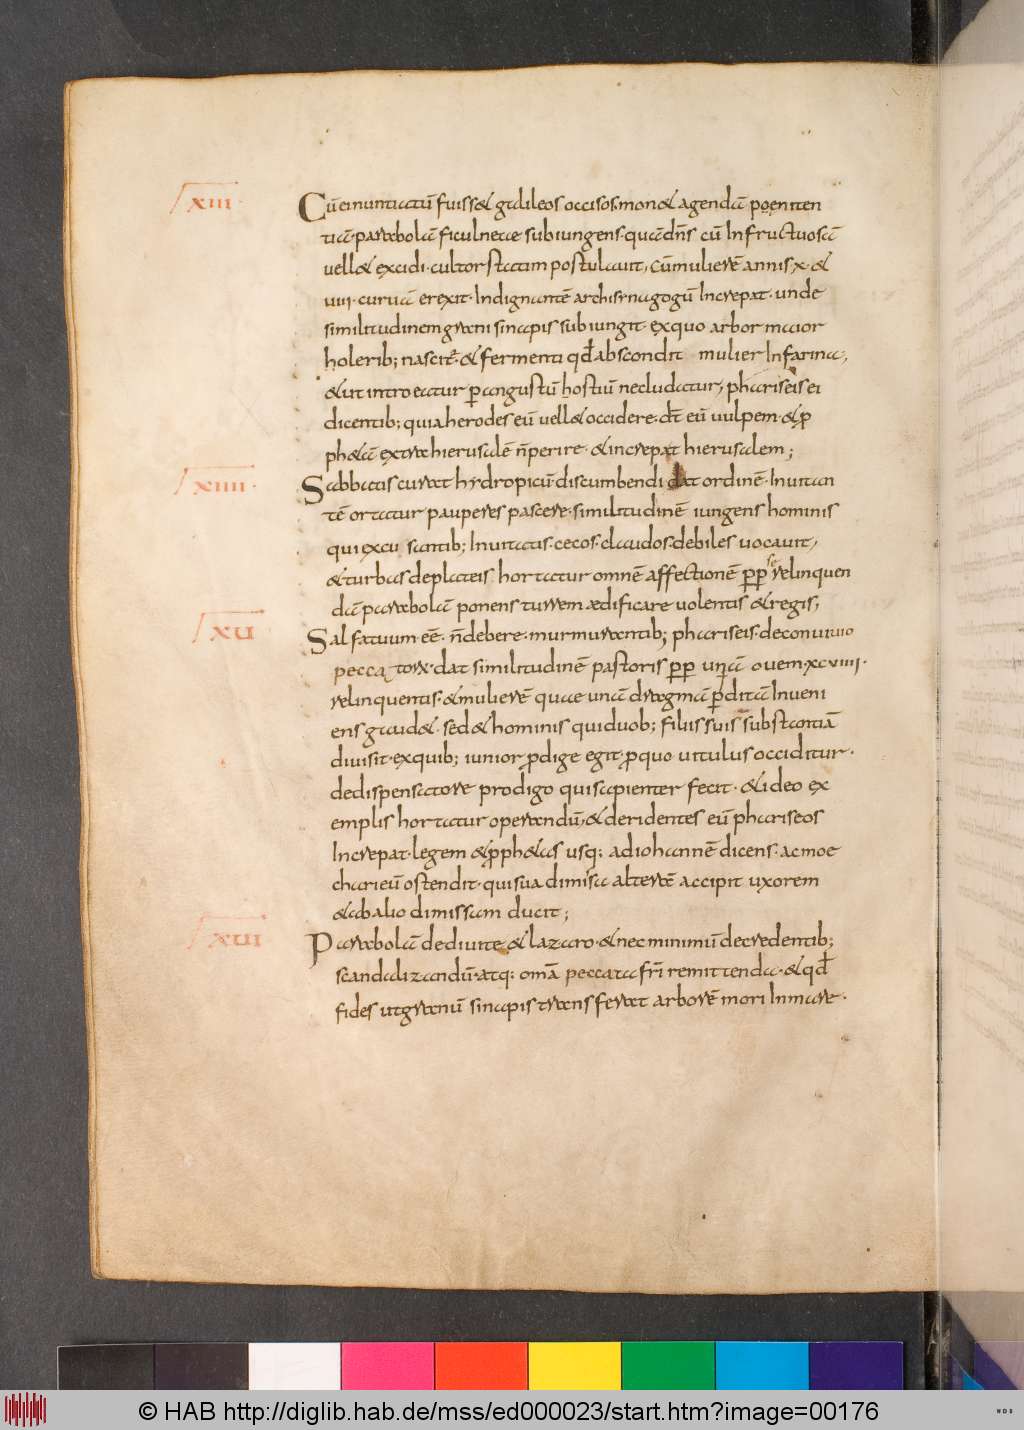 XIII· Cū ei nuntiatū fuiss& galileos occisos· mon& agendā poeniten
tiā· parabolā ficulneae subiungens· quā dn̄s cū Infructuosā
uell& excidi· cultor statim postulauit, Cū mulierē annis· x· &
uiii· curuā erexit· Indignantē archisynagogū Increpat· unde
similitudinem grani sinapis subiungit· ex quo arbor maior
holerib; nascit᷑· & fermenti qd̄ abscondit mulier In farina,
& ut introeatur p̄ angustū hostiū ne cludatur, phariseis ei
dicentib; quia herodes eū uell& occidere· dic̄ eū uulpem· & p̄
ph&ā extra hierusalē n̄ perire· & increpat hierusalem;
XIIII· Sabbatis curat hydropicū· discumbendi dat ordinē· Inuitan
tē ortatur pauperes pascere· similitudinē iungens hominis
qui excusantib; Inuitatis· cecos· claudos· debiles uocauit,
& turbas de plateis hortatur omnē affectionē p̄p̄ se relinquen
dā parabolā ponens turrem ædificare uolentis & regis,
XU Sal fatuum eē· n̄ debere· murmurantib; phariseis· de conuiuio
peccatorꝝ· dat similitudinē pastoris p̄p̄ unā ouem· xcuiiii·
relinquentis· & mulierē quae unā dragmā p̄ditā Inueni
ens gaud&· sed & hominis qui duob; filiis suis substantiā
diuisit· ex quib; iunior p̄dige egit· p̄ quo uitulus occiditur·
de dispensatore prodigo qui sapienter fecit· & ideo ex
emplis hortatur operandū, & deridentes eū phariseos
Increpat· legem & p̄ph&as usq; ad iohannē dicens· ac moe
chari eū ostendit· qui sua dimisa alterā accipit uxorem
& ab alio dimissam ducit;
XUI Parabolā de diuite & lazaro· & nec minimū de credentib;
scandalizandū· atq; omā peccata fr̄i remittenda· & qd̄
fides ut granū sinapis transferat arborē mori In mare·
© HAB http://diglib.hab.de/mss/ed000023/start.htm?image=00176